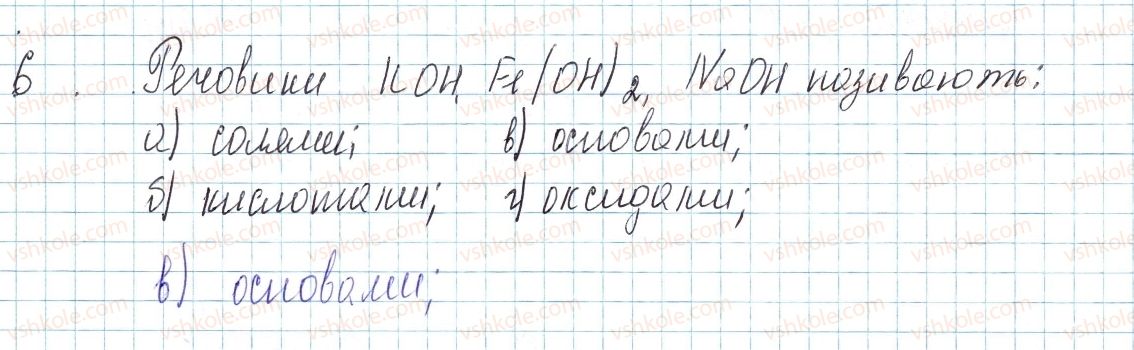 6. Речовини KOH, Fe(OH)2, NaOH називають:
а) солями; в) основами;
б) кислотами; г) оксидами;
в) основами;